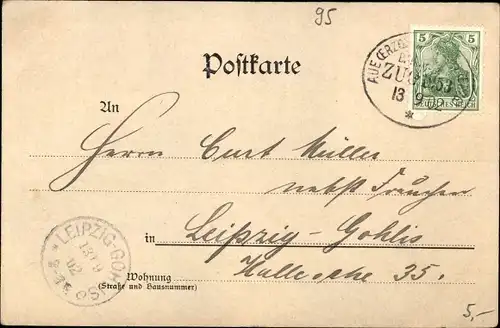 95
5
AUE (ERZG
ZUG
13 9
DEUTSCHES REICH
Postkarte
An
Herrn Curt Müller
nebst Frauchen
in Leipzig-Gohlis
Hallesche 35.
Wohnung
(Straße und Hausnummer)
*LEIPZIG-GOH
13 9
02
5,-